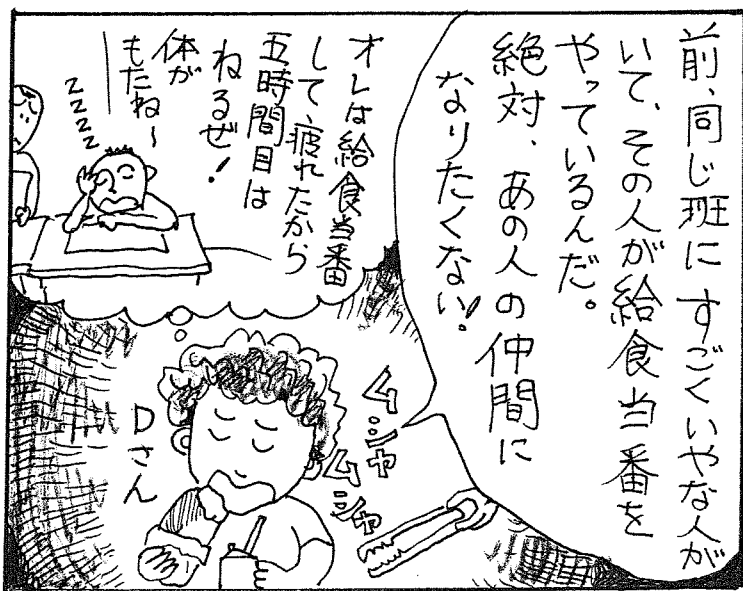 前、同じ班にすごくいやな人が
いて、その人が給食当番を
やっているんだ。
絶対、あの人の仲間に
なりたくない!
オレは給食当番
して、疲れたから
五時間目は
ねるぜ!
体が
もたね〜
zzzz
ムシャ
ムシャ
Dさん